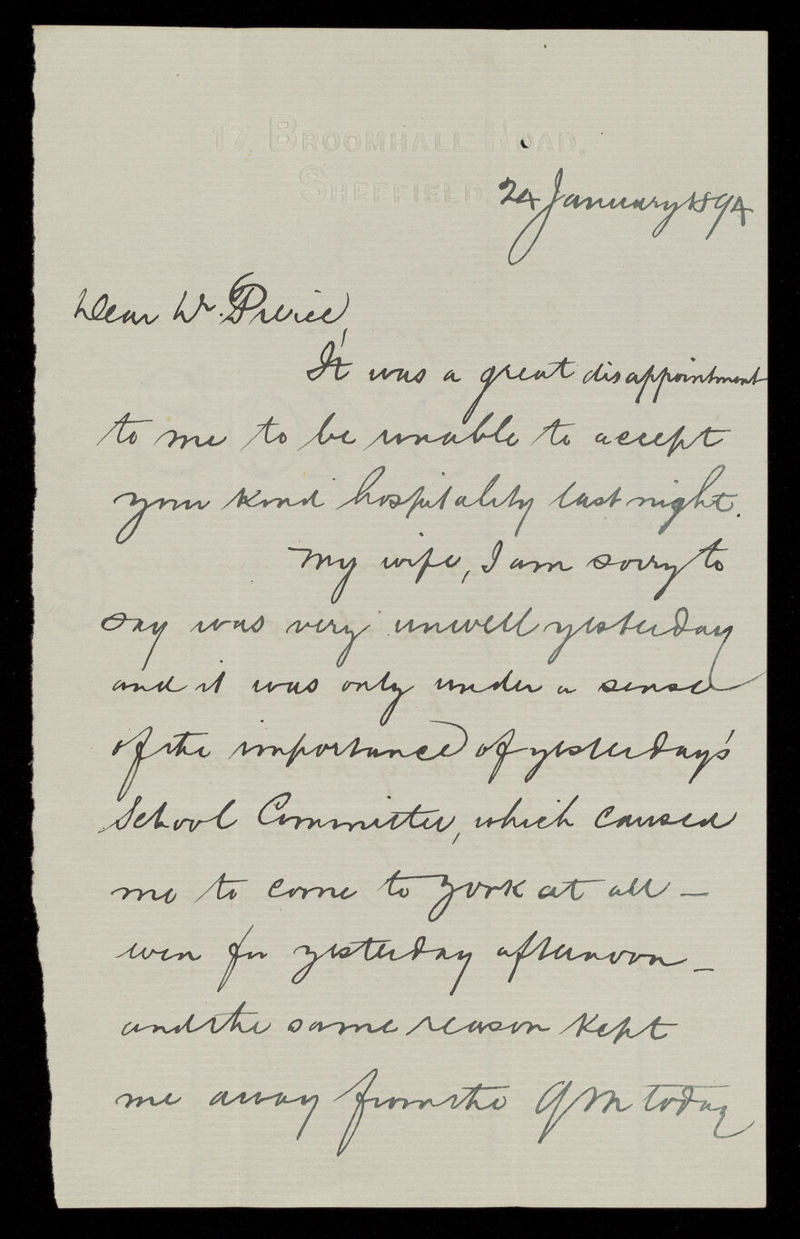 17, BROOMHALL ROAD,
SHEFFIELD.
24 January 1894
Dear Dr. Pierce,
It was a great disappointment
to me to be unable to accept
your kind hospitality last night.
My wife, I am sorry to
say was very unwell yesterday
and it was only under a sense
of the importance of yesterday's
School Committee, which caused
me to come to York at all —
even for yesterday afternoon —
and the same reason kept
me away from the QM today